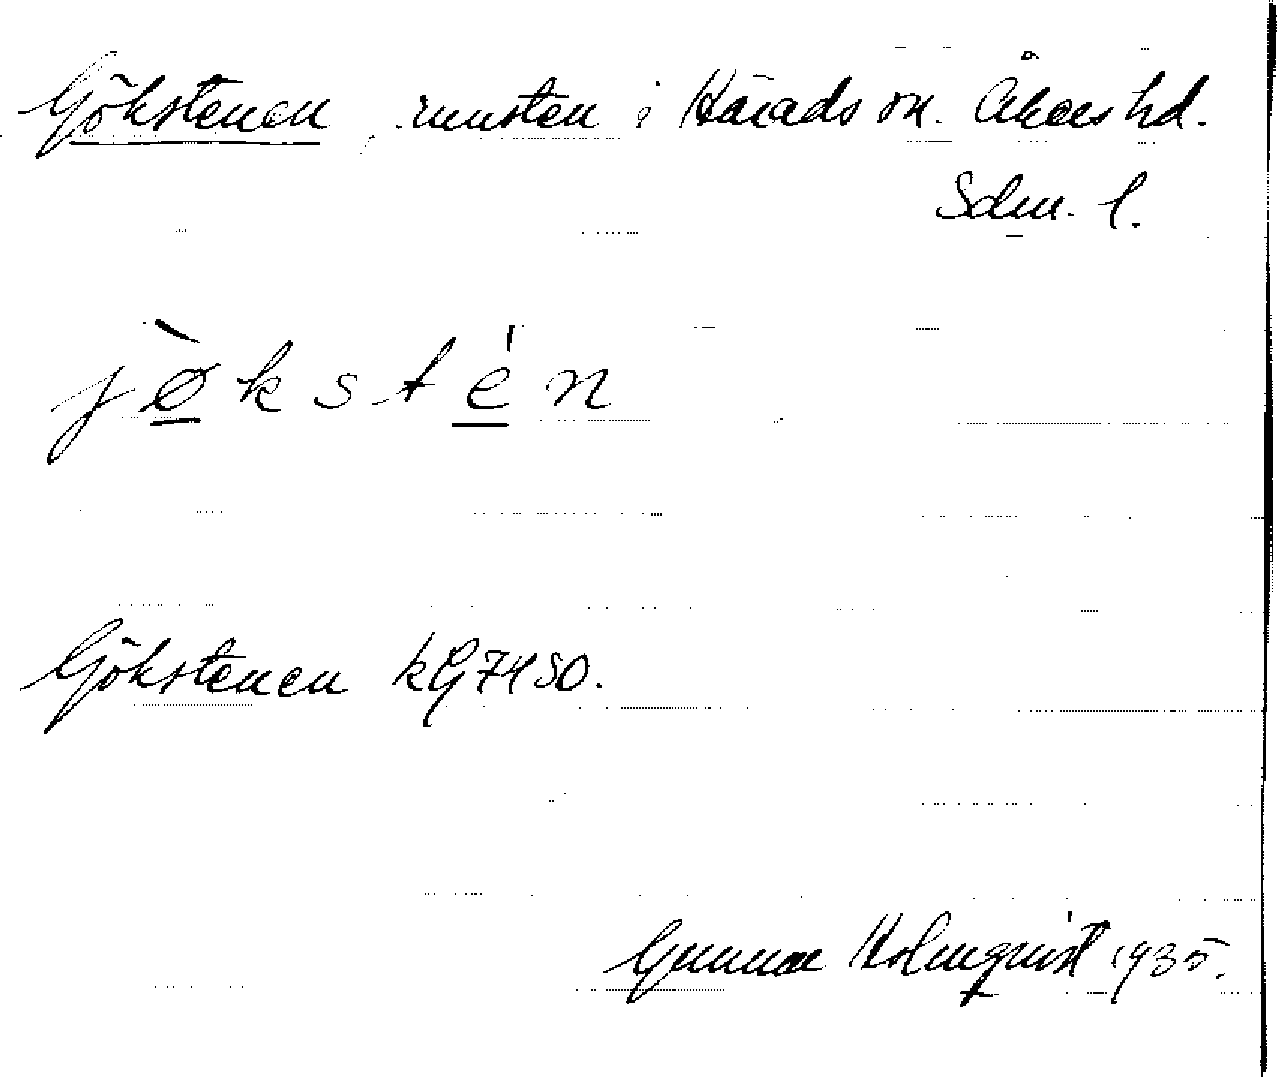 Gökstenen, runsten i Härads sn. Åkers hd.
Sdm. l.
jø̀kstén
Gökstenen kG7450.
Gunnar Holmqvist 1935.